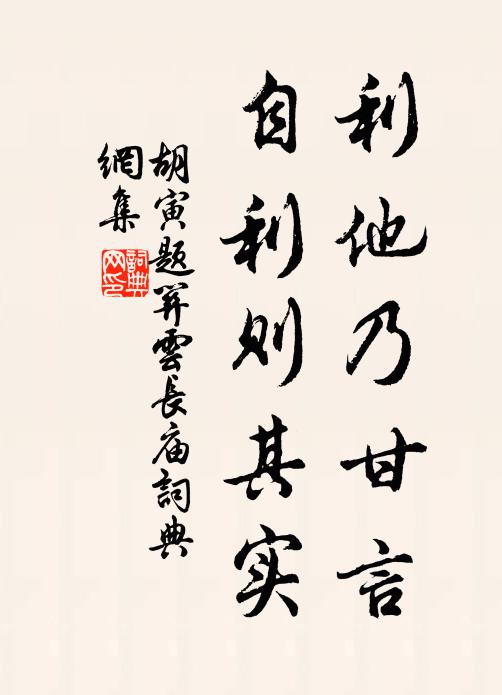 利他乃甘言
自利则其实
胡寅题关雲長庙詞典
網集
詞典
网印